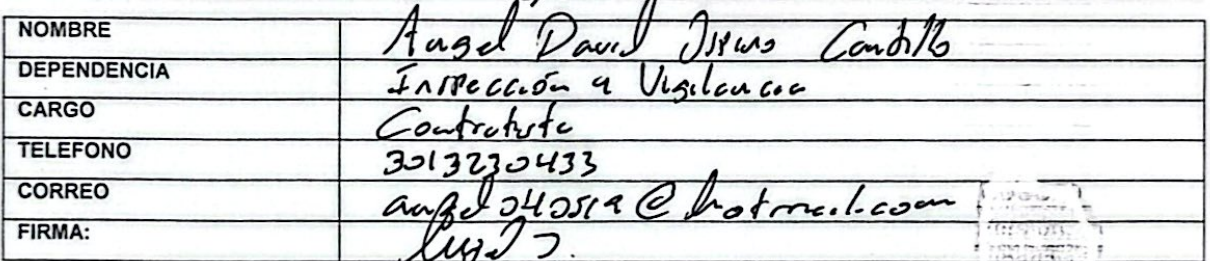 NOMBRE Angel David Candillo
DEPENDENCIA Inspección y Vigilancia
CARGO Contratista
TELEFONO 3013230433
CORREO @hotmail.com
FIRMA: